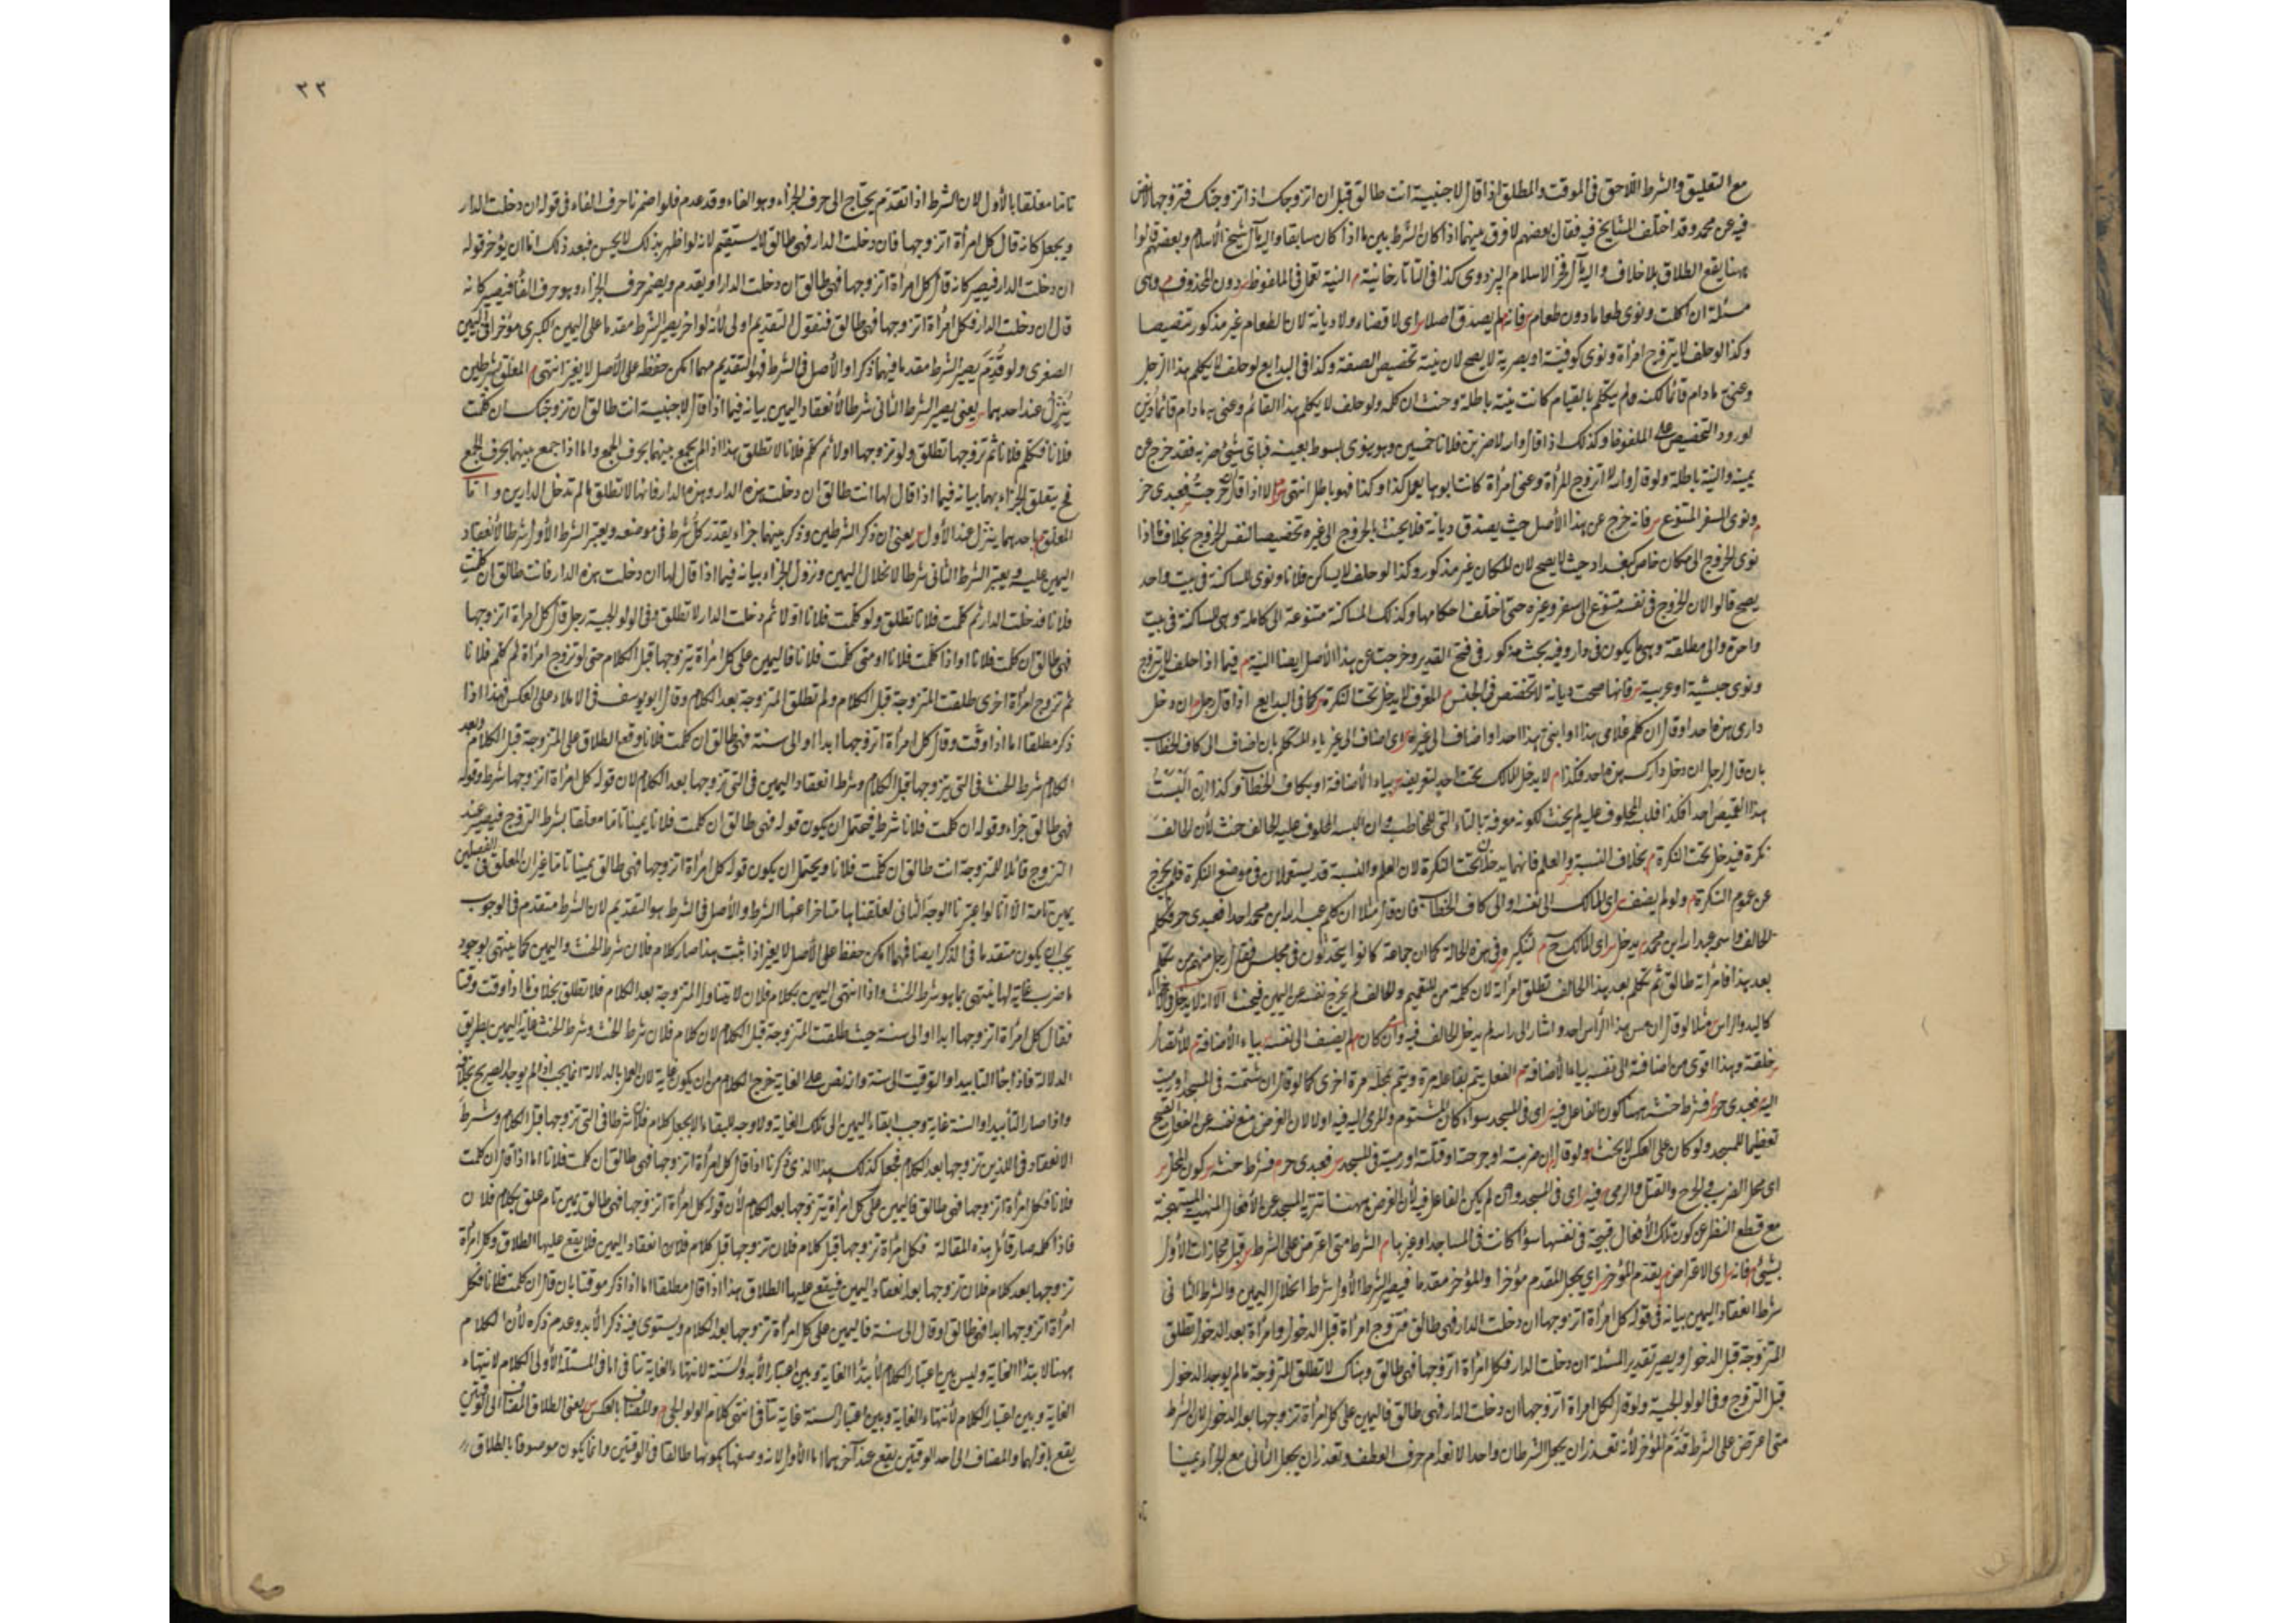 مع التعليق والشرط اللاحق في الموقت والمطلق اذا قال لاجنبية انت طالق قبل ان اتزوجك اذا تزوجتك فتزوجها
فيه عن محمد وقد اختلف المشايخ فيه فقال بعضهم لا فرق بينهما اذا كان الشرط بين ما اذا كان سابقا واليه مال شيخ الاسلام وبعضهم قالوا
ههنا يقع الطلاق بلا خلاف واليه مال فخر الاسلام البزدوي كذا في التاتارخانية م النية تعمل في الملفوظ دون المحذوف م وهي
مسئلة ان اكلت ونوى طعاما دون طعام فانه لم يصدق اصلا اى لا قضاء ولا ديانة لان الطعام غير مذكور تنصيصا
وكذا لو حلف لا يتزوج امرأة ونوى كوفية او بصرية لا يصح لان نية تخصيص الصفة وكذا في البدايع لو حلف لا يكلم هذا الرجل
وعنى به ما دام قائما لكنه لم يتكلم بالقيام كانت نيته باطلة وحنث ان كلمه ولو حلف لا يكلم هذا القائم وعنى به ما دام قائما دين
لورود التخصيص على الملفوظ وكذلك اذا قال والله لاضربن فلانا خمسين وهو ينوى بسوط بعينه فباى شيئ ضربه فقد خرج عن
يمينه والنية باطلة ولو قال والله لا اتزوج امرأة وعنى امرأة كانت ابوها يعمل كذا وكذا فهو باطل انتهى م الا اذا قال ان خرجت فعبدى حر
م ونوى السفر المتنوع فانه خرج عن هذا الأصل حيث يصدق ديانة فلا يحنث بالخروج الى غيره تخصيصا لنفس الخروج بخلاف ما اذا
نوى الخروج الى مكان خاص كبغداد حيث لا يصح لان المكان غير مذكور وكذا لو حلف لا يساكن فلانا ونوى المساكنة في بيت واحد
يصح قالوا لان الخروج في نفسه متنوع الى سفر وغيره حتى اختلف احكامهما وكذلك المساكنة متنوعة الى كاملة وهى المساكنة في بيت
واحد والى مطلقة وهى ما يكون في دار وفيه بحث مذكور في فتح القدير وخرجت عن هذا الأصل ايضا النية م فيما اذا حلف لا يتزوج
ونوى حبشية او عربية فانها صحت ديانة لا تخصص في الجنس م المعرف لا يدخل تحت النكرة كما في البدايع اذا قال رجل ان دخل
دارى هذه احد او قال ان كلم غلامى هذا او ابنى هذا احد او اضاف الى غيره اى اضاف الى غير ياء المتكلم بان اضاف الى كاف الخطاب
بان قال لرجل ان دخل دارك هذه احد فكذا م لا يدخل المالك تحت احد لتعريفه بياء الأضافة او بكاف الخطاب وكذا ان البست
هذا القميص احدا فكذا فلبسه المحلوف عليه لم يحنث لكونه معرفة بالتاء التى للمخاطب وان البسه المحلوف عليه الحالف حنث لأن الحالف
نكرة فيدخل تحت النكرة م بخلاف النسبة والعلم فانهما يدخلان تحت النكرة لان العلم والنسبة قد يستعملان في موضع النكرة فلم يخرج
عن عموم النكرة م ولو لم يضف اى المالك الى نفسه او الى كاف الخطاب فان قال مثلا ان كلم عبد الله ابن محمد احد فعبدى حر فتكلم
الحالف واسمه عبد الله ابن محمد يدخل اى المالك لتنكره وفي هذه الحالة كما ان جماعة كانوا يتحدثون في مجلس فقال رجل منهم من تكلم
بعد هذا فامرأته طالق ثم تكلم بعد هذا الحالف تطلق امرأته لان كلمة من للتعميم والحالف لم يخرج نفسه عن اليمين فيحنث الا انه لا يدخل
كاليد والراس مثلا لو قال ان مس هذا الراس احد واشار الى راسه لم يدخل الحالف فيه وان كان لم يضف الى نفسه بياء الأضافة للأتصال
خلقة وهذا اقوى من اضافته الى نفسه بياء الأضافة م الفعل يتم بفاعله مرة ويتم بمحله مرة اخرى كما لو قال ان شتمته في المسجد او رميت
اليه فعبدى حر فشرط حنثه ههنا كون الفاعل فيه اى في المسجد سواء كان المشتوم والمرمى اليه فيه اولا لان الغرض منع نفسه عن الفعل القبيح
تعظيما للمسجد ولو كان على العكس لا يحنث ولو قال ان ضربته او جرحته او قتلته او رميته في المسجد فعبدى حر م فشرط حنثه كون المحل
اى محل الضرب والجرح والقتل والرمى فيه اى في المسجد وان لم يكن الفاعل فيه لأن الغرض ههنا تنزيه المسجد عن الأفعال المنهية المستهجنة
مع قطع النظر عن كون تلك الأفعال قبيحة في نفسها سواء كانت في المساجد او غيرها م الشرط متى اعترض على الشرط قبل مجازات الأول
بشيئ فانه اى الاعتراض م يقدم المؤخر اى يجعل المقدم مؤخرا والمؤخر مقدما فيصير الشرط الأول شرط انحلال اليمين والشرط الثانى
شرط انعقاد اليمين بيانه في قوله كل امرأة اتزوجها ان دخلت الدار فهى طالق فتزوج امرأة قبل الدخول وامرأة بعد الدخول تطلق
المتزوجة قبل الدخول ويصير تقدير المسئلة ان دخلت الدار فكل امرأة اتزوجها فهى طالق وهناك لا تطلق المتزوجة ما لم يوجد الدخول
قبل التزوج وفي الولوالجية ولو قال كل امرأة اتزوجها ان دخلت الدار فهى طالق فاليمين على كل امرأة تزوجها بعد الدخول لان الشرط
متى اعترض على الشرط قدم المؤخر لأنه تعذر ان يجعل الشرطان واحدا لانعدام حرف العطف وتعذر ان يجعل الثانى مع الجزاء يمينا
٣٣
تاما معلقا بالأول لان الشرط اذا تقدم يحتاج الى حرف الجزاء وهو الفاء وقد عدم فلو اضمرنا حرف الفاء في قوله ان دخلت الدار
ويجعل كانه قال كل امرأة اتزوجها فان دخلت الدار فهى طالق لا يستقيم لانه لو اظهر بذلك لا يحسن فبعد ذلك اما ان يؤخر قوله
ان دخلت الدار فيصير كانه قال كل امرأة اتزوجها فهى طالق ان دخلت الدار او يقدم ويضمر حرف الجزاء وهو حرف الفأ فيصير كانه
قال ان دخلت الدار فكل امرأة اتزوجها فهى طالق فنقول التقديم اولى لأنه لو اخر يصير الشرط مقدما على اليمين الكبرى مؤخرا في اليمين
الصغرى ولو قدم يصير الشرط مقدما فيهما ذكرا والأصل في الشرط فهو التقديم مهما امكن حفظه على الأصل لا يغير انتهى م المعلق بشرطين
ينزل عند احدهما يعنى يصير الشرط الثانى شرطا لأنعقاد اليمين بيانه فيما اذا قال لاجنبية انت طالق ان تزوجتك ان كلمت
فلانا فتكلم فلانا ثم تزوجها تطلق ولو تزوجها اولا ثم كلم فلانا لا تطلق هذا اذا لم يجمع بينهما بحرف الجمع واما اذا جمع بينهما بحرف الجمع
فح يتعلق الجزاء بهما بيانه فيما اذا قال لها انت طالق ان دخلت هذه الدار وهذه الدار فانها لا تطلق ما لم تدخل الدارين واما
المعلق م باحدهما ينزل عند الأول يعنى ان ذكر الشرطين وذكر بينهما جزاء يقدر كل شرط في موضعه ويعتبر الشرط الأول شرطا لأنعقاد
اليمين عليه ويعتبر الشرط الثانى شرطا لانحلال اليمين ونزول الجزاء بيانه فيما اذا قال لها ان دخلت هذه الدار فانت طالق ان كلمت
فلانا فدخلت الدار ثم كلمت فلانا تطلق ولو كلمت فلانا اولا ثم دخلت الدار لا تطلق وفي الولوالجية رجل قال كل امرأة اتزوجها
فهى طالق ان كلمت فلانا او اذا كلمت فلانا او متى كلمت فلانا فاليمين على كل امرأة يتزوجها قبل الكلام حتى لو تزوج امرأة ثم كلم فلانا
ثم تزوج امرأة اخرى طلقت المتزوجة قبل الكلام ولم تطلق المتزوجة بعد الكلام وقال ابو يوسف في الاملاء على العكس هذا اذا
ذكر مطلقا اما اذا وقت وقال كل امرأة اتزوجها ابدا او الى سنة فهى طالق ان كلمت فلانا وقع الطلاق على المتزوجة قبل الكلام وبعد
الكلام شرط الحنث في التى يتزوجها قبل الكلام وشرط انعقاد اليمين في التى تزوجها بعد الكلام لان قوله كل امرأة اتزوجها شرط وقوله
فهى طالق جزاء وقوله ان كلمت فلانا شرط فيحتمل ان يكون قوله فهى طالق ان كلمت فلانا يمينا تاما معلقا بشرط التزوج فيصير عند
التزوج قائلا للمتزوجة انت طالق ان كلمت فلانا ويحتمل ان يكون قوله كل امرأة اتزوجها فهى طالق يمينا تاما غير ان المعلق في الفصلين
يمين تامة الا انا لو اعتبرنا الوجه الثانى لعلقنا بها متاخرا عنها الشرط والأصل في الشرط هو التقديم لان الشرط متقدم في الوجوب
يجب ان يكون متقدما في الذكر ايضا فمهما امكن حفظه على الأصل لا يغير اذا ثبت هذا صار كلام فلان شرط الحنث واليمين كما ينتهى بوجود
ما ضرب غاية لها ينتهى بما هو شرط الحنث واذا انتهى اليمين بكلام فلان لا يتناول المتزوجة بعد الكلام فلا تطلق بخلاف ما اذا وقت وقتا
فقال كل امرأة اتزوجها ابدا او الى سنة حيث طلقت المتزوجة قبل الكلام لان كلام فلان شرط الحنث وشرط الحنث غاية اليمين بطريق
الدلالة فاذا جاء التابيد او التوقيت الى سنة وانه نص على الغاية خرج الكلام من ان يكون غاية لان العمل بالدلالة انما يجب اذا لم يوجد الصريح بخلافه
واذا صار التأبيد او السنة غاية وجب ابقاء اليمين الى تلك الغاية ولا وجه للبقاء الا بجعل كلام فلان شرطا في التى تزوجها قبل الكلام وشرط
الانعقاد في اللذين تزوجها بعد الكلام فجعل كذلك هذا الذى ذكرنا اذا قال كل امرأة اتزوجها فهى طالق ان كلمت فلانا اما اذا قال ان كلمت
فلانا فكل امرأة اتزوجها فهى طالق فاليمين على كل امرأة يتزوجها بعد الكلام لأن قوله كل امرأة اتزوجها فهى طالق يمين تام علق بكلام فلان
فاذا كلمه صار قائل هذه المقالة فكل امرأة تزوجها قبل كلام فلان تزوجها قبل كلام فلان انعقاد اليمين فلا يقع عليها الطلاق وكل امرأة
تزوجها بعد كلام فلان تزوجها بعد انعقاد اليمين فيقع عليها الطلاق هذا اذا قال مطلقا اما اذا ذكر موقتا بان قال ان كلمت فلانا فكل
امرأة اتزوجها ابدا فهى طالق او قال الى سنة فاليمين على كل امرأة تزوجها بعد الكلام ويستوى فيه ذكر الأبد وعدم ذكره لأن الكلام
ههنا لابتداء الغاية وليس بين اعتبار الكلام لأبتداء الغاية وبين اعتبار الأبد والسنة لانتهاء الغاية تنافى اما في المسئلة الأولى الكلام لانتهاء
الغاية وبين اعتبار الكلام لأنتهاء الغاية وبين اعتبار السنة غاية تنافى انتهى كلام الولوالجى م والمضاف بالعكس يعنى الطلاق المضاف الى الوقتين
يقع باولهما والمضاف الى احد الوقتين يقع عند آخرهما اما الأول لانه وصفها بكونها طالقا في الوقتين وانما يكون موصوفا بالطلاق